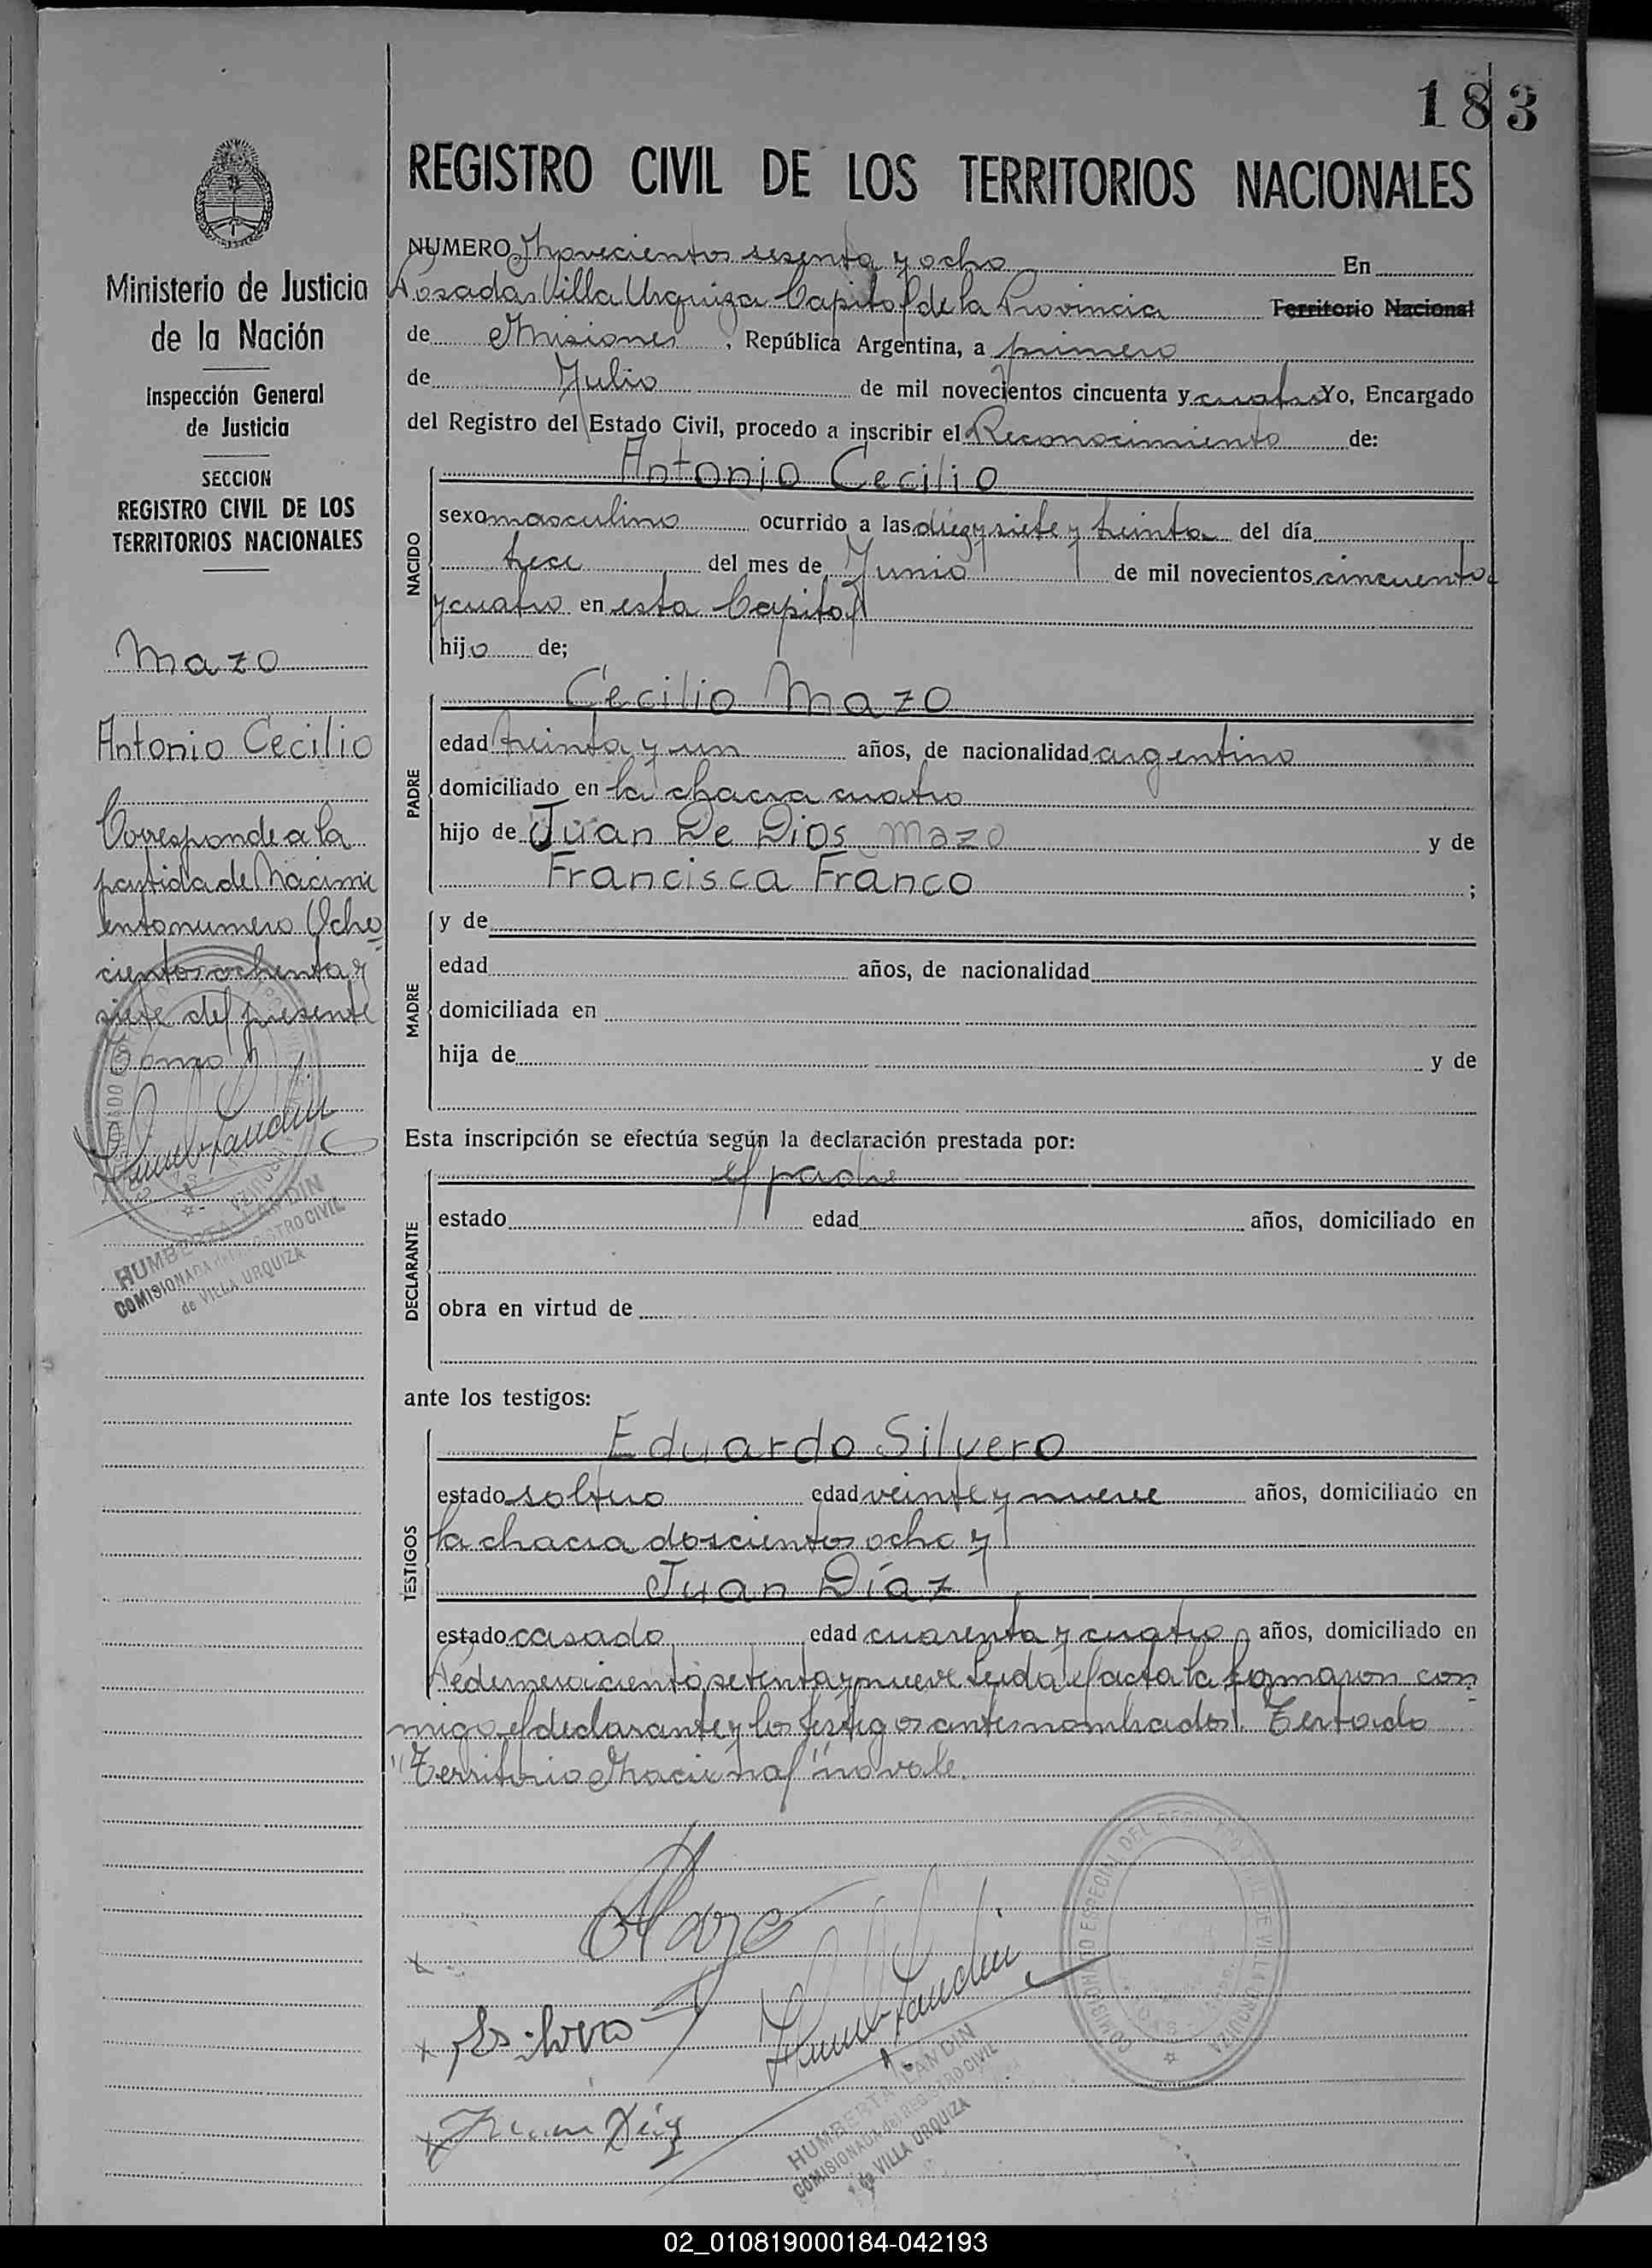 183
REGISTRO CIVIL DE LOS TERRITORIOS NACIONALES
Ministerio de Justicia
de la Nación
Inspección General
de Justicia
SECCION
REGISTRO CIVIL DE LOS
TERRITORIOS NACIONALES
Mazo
Antonio Cecilio
Corresponde a la
partida de Nacimi
ento numero Ocho
cientos ochenta y
siete del presente
Tomo
HUMBERTA LANDIN
COMISIONADA del REGISTRO CIVIL
de VILLA URQUIZA
NUMERO Novecientos sesenta y ocho En
Posadas Villa Urquiza Capital de la Provincia Territorio Nacional
de Misiones, República Argentina, a primero
de Julio de mil novecientos cincuenta y cuatro Yo, Encargado
del Registro del Estado Civil, procedo a inscribir el Reconocimiento de:
NACIDO
Antonio Cecilio
sexo masculino ocurrido a las diez y siete y treinta del día
trece del mes de Junio de mil novecientos cincuenta
y cuatro en esta Capital
hijo de;
PADRE
Cecilio Mazo
edad treinta y un años, de nacionalidad argentino
domiciliado en la chacra cuatro
hijo de Juan De Dios Mazo y de
Francisca Franco ;
MADRE
y de
edad años, de nacionalidad
domiciliada en
hija de y de
Esta inscripción se efectúa según la declaración prestada por:
DECLARANTE
el padre
estado edad años, domiciliado en
obra en virtud de
ante los testigos:
TESTIGOS
Eduardo Silvero
estado soltero edad veinte y nueve años, domiciliado en
la chacra doscientos ocho y
Juan Díaz
estado casado edad cuarenta y cuatro años, domiciliado en
ciento setenta y nueve Leida el acta la firmaron con
migo el declarante y los testigos antes nombrados. Testado
"Territorio Nacional" no vale.
CMazo
ESilvero
Juan Díaz
HUMBERTA LANDIN
COMISIONADA del REGISTRO CIVIL
de VILLA URQUIZA
COMISIONADO ESPECIAL DEL REGISTRO CIVIL DE VILLA URQUIZA
02_010819000184-042193